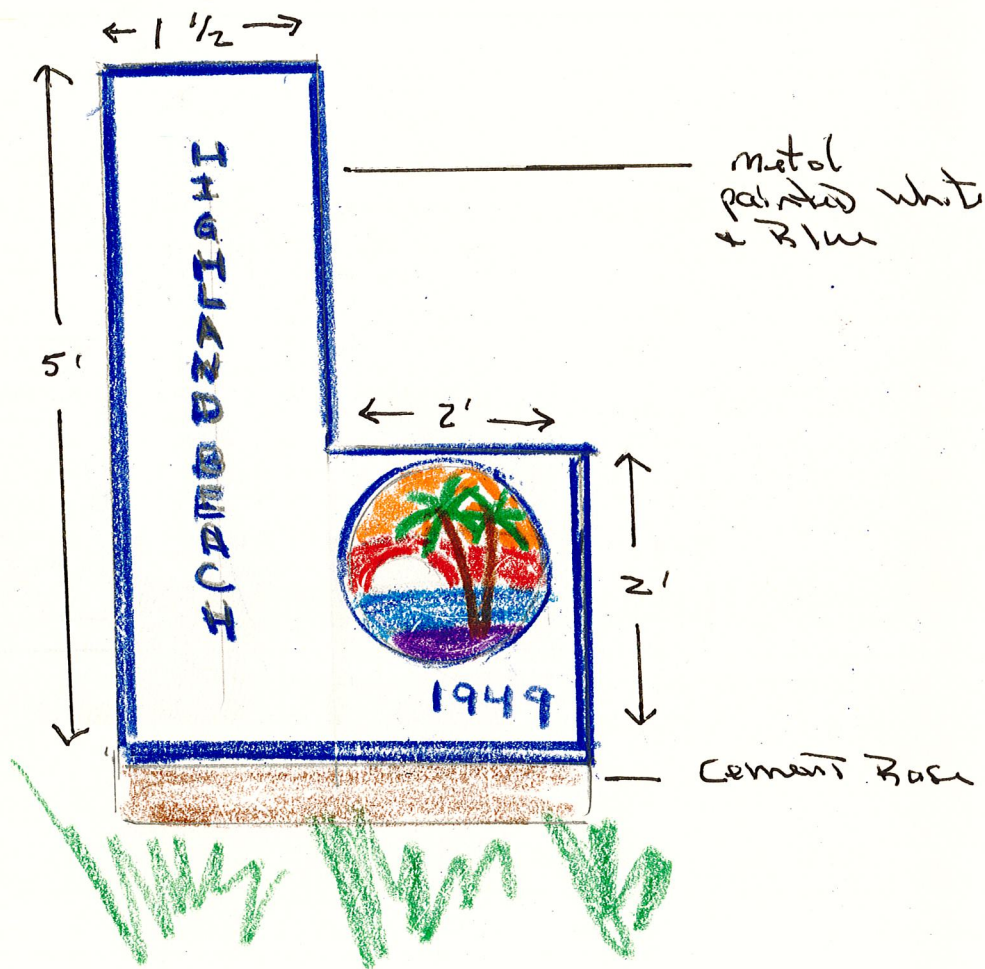 1 1/2
5'
HIGHLAND BEACH
metal
painted white
+ Blue
2'
2'
1949
Cement Base